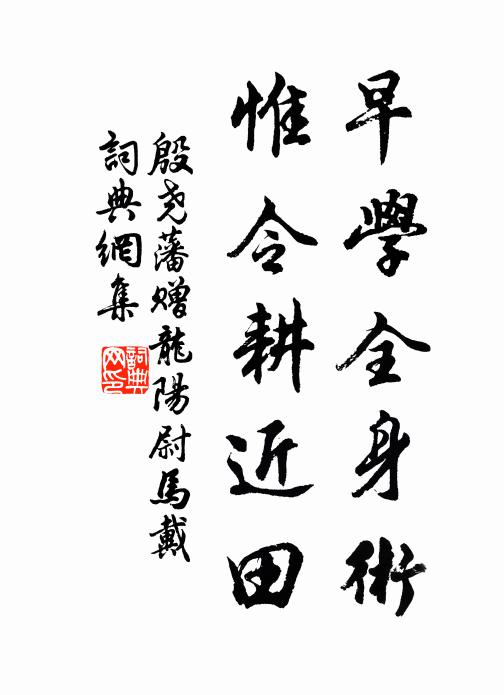 早學全身術
惟令耕近田
殷堯藩贈龍陽尉馬戴
詞典網集
詞典網印